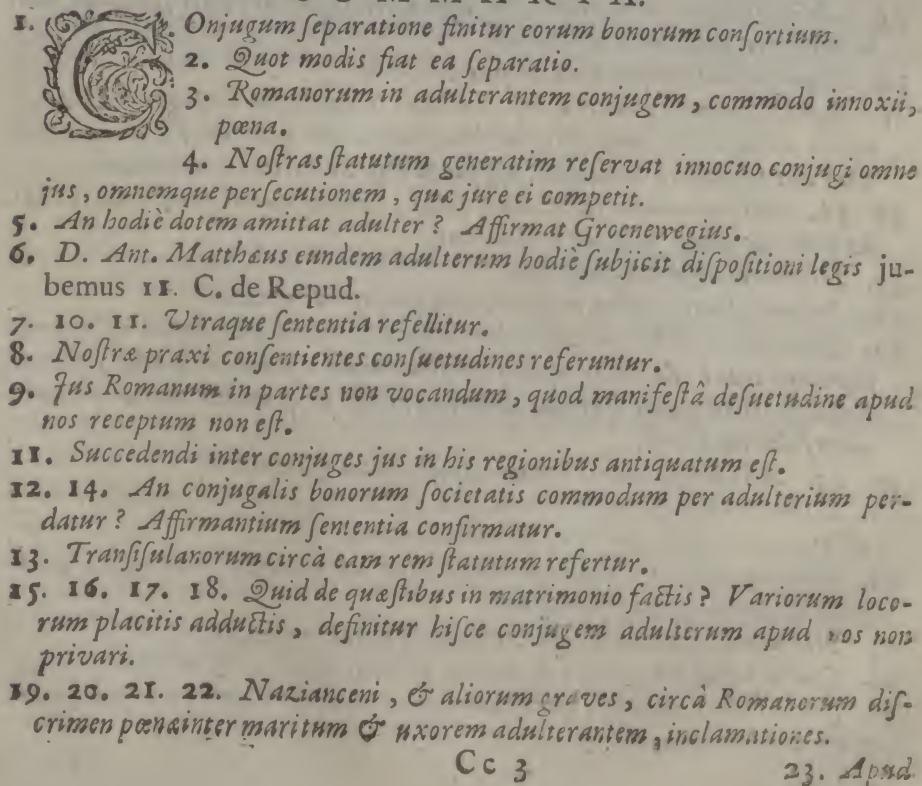 1. COnjugum ſeparatione finitur eorum bonorum conſortium.
2. Quot modis fiat ea ſeparatio.
3. Romanorum in adulterantem conjugem, commodo innoxii,
pœna.
4. Noſtras ſtatutum generatim reſervat innocuo conjugi omne
jus, omnemque perſecutionem, quæ jure ei competit.
5. An hodiè dotem amittat adulter? Affirmat Groenewegius.
6. D. Ant. Matthæus eundem adulterum hodiè ſubjicit diſpoſitioni legis ju-
bemus 11. C. de Repud.
7. 10. 11. Utraque ſententia refellitur.
8. Noſtræ praxi conſentientes conſuetudines referuntur.
9. Jus Romanum in partes non vocandum, quod manifeſtâ deſuetudine apud
nos receptum non eſt.
11. Succedendi inter conjuges jus in his regionibus antiquatum eſt.
12. 14. An conjugalis bonorum ſocietatis commodum per adulterium per-
datur? Affirmantium ſententia confirmatur.
13. Tranſiſulanorum circà eam rem ſtatutum refertur.
15. 16. 17. 18. Quid de quæſtibus in matrimonio factis? Variorum loco-
rum placitis adductis, definitur hiſce conjugem adulterum apud nos non
privari.
19. 20. 21. 22. Nazianceni, & aliorum graves, circà Romanorum diſ-
crimen pœnæ inter maritum & uxorem adulterantem, inclamationes.
Cc 3 23. Apud